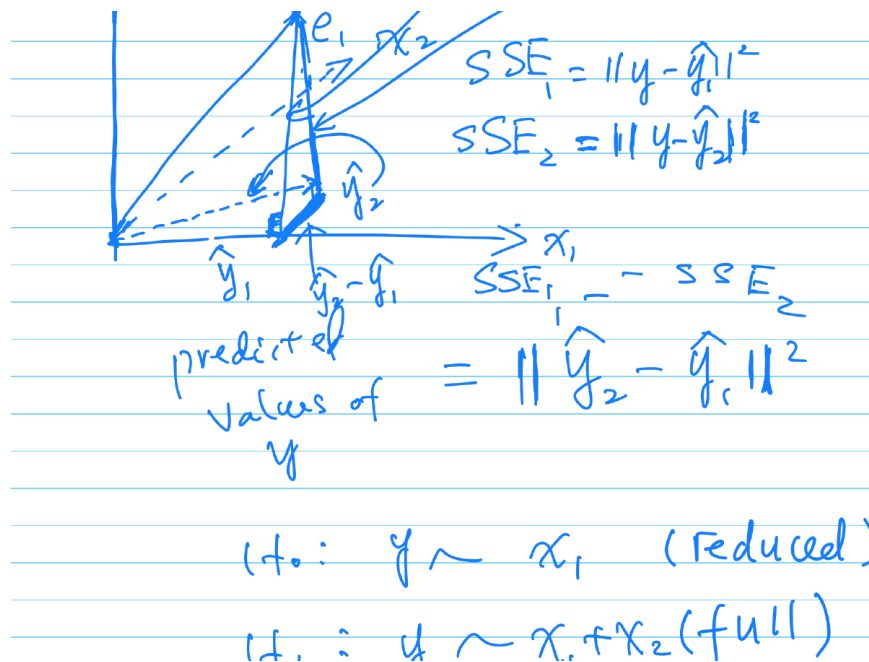 e₁
x₂
SSE₁ = ||y - ŷ₁||²
SSE₂ = ||y - ŷ₂||²
ŷ₂
x₁
ŷ₁
ŷ₂ - ŷ₁
SSE₁ - SSE₂
predicted
values of
y
= ||ŷ₂ - ŷ₁||²
H₀: y ~ x₁ (reduced)
H₁: y ~ x₁ + x₂ (full)